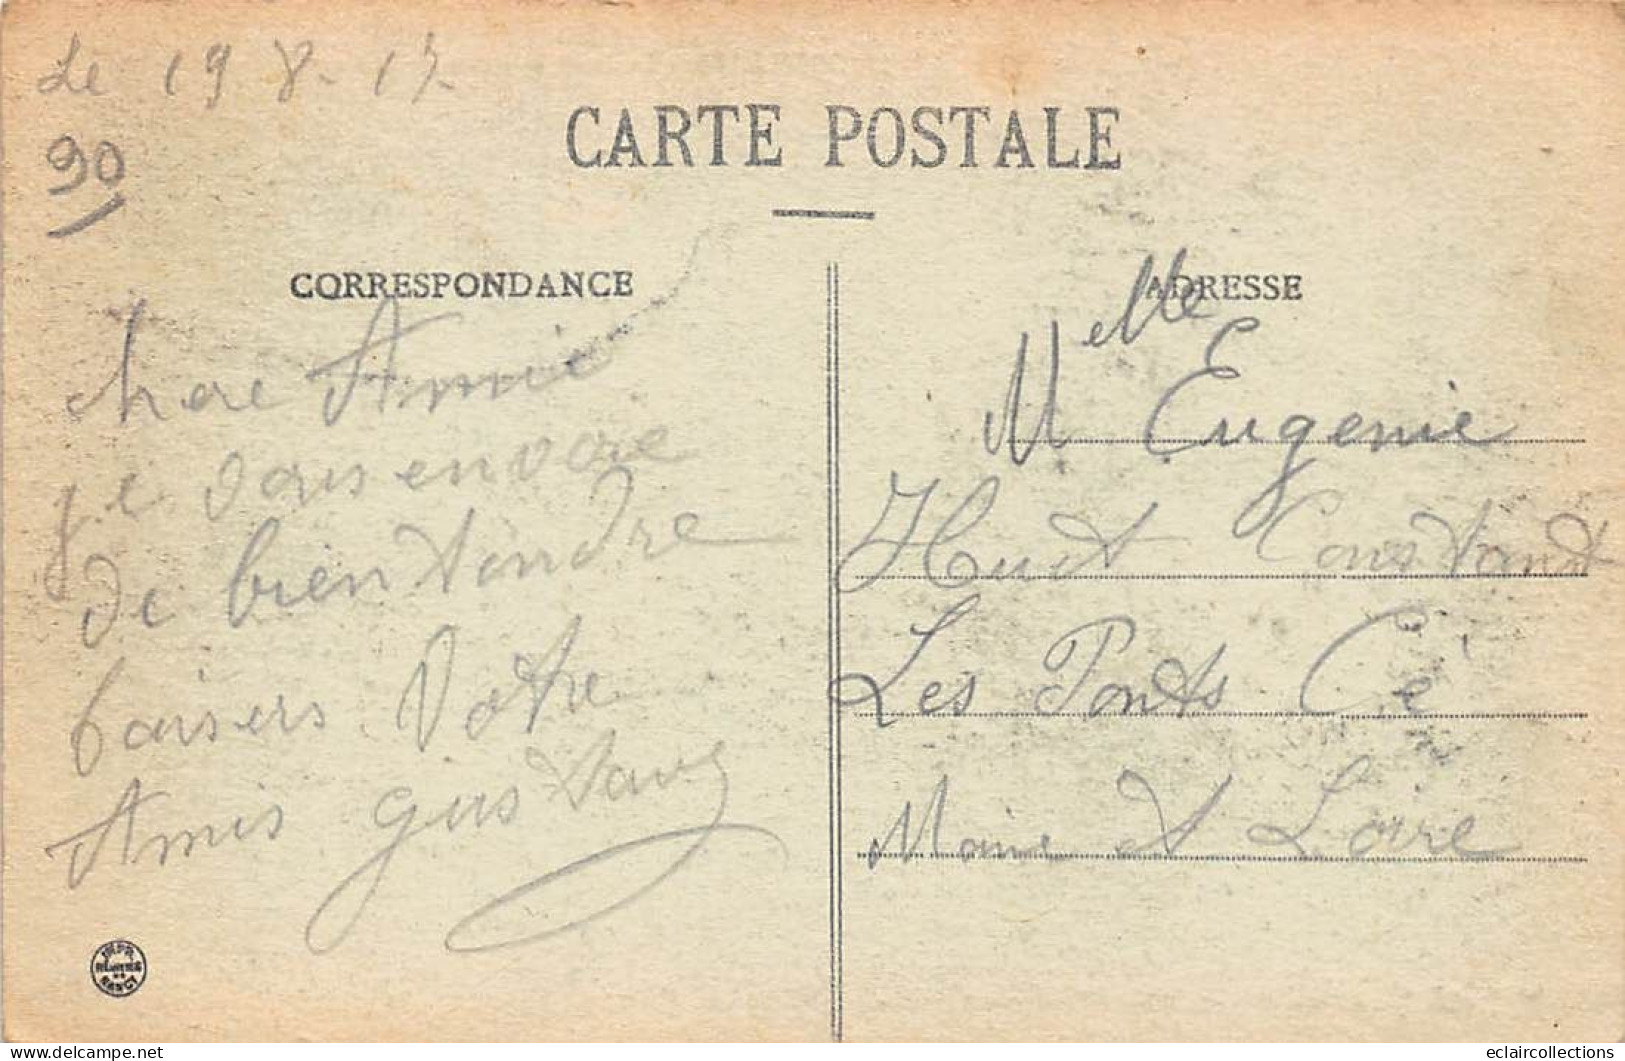 Le 19 8-17
90
CARTE POSTALE
CORRESPONDANCE
chere Amie
je vous envoie
de bien tendre
baisers Votre
Amis gustave
ADRESSE
Melle Eugenie
Huet Constant
Les Ponts Cé
Maine et Loire
IMPR
REUNIES
DE
NANCY
delcampe.net
eclaircollections